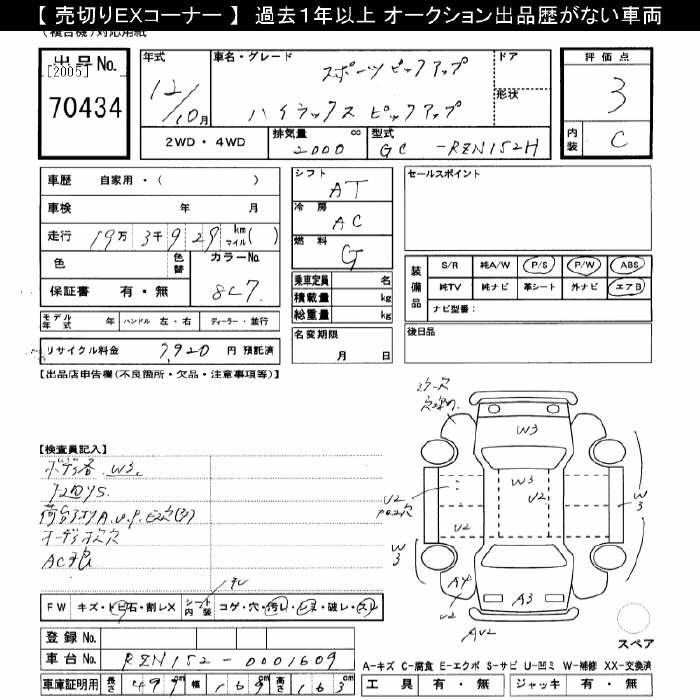 【 売切りEXコーナー 】 過去１年以上 オークション出品歴がない車両
出品No.
[2005]
70434
年式
12/10月
車名・グレード
スポーツピックアップ
ハイラックス ピックアップ
ドア
形状
評価点
3
内装
C
2WD・4WD
排気量 cc
2000
型式
GC -RZN152H
車歴 自家用・( )
車検 年 月
走行 19万 3千9 29 km マイル( )
色
色替
カラーNo.
8L7
保証書 有・無
モデル年式 年 ハンドル 左・右 ディーラー・並行
リサイクル料金 7,920 円 預託済
シフト
AT
冷房
AC
燃料
G
乗車定員 名
積載量 kg
総重量 kg
名変期限
月 日
セールスポイント
装備品
S/R 純A/W P/S P/W ABS
純TV 純ナビ 革シート 外ナビ エアB
ナビ型番:
後日品
【出品店申告欄(不良箇所・欠品・注意事項等)】
【検査員記入】
W3
FW キズ・トビ石・割レX
シート内装
コゲ・穴・汚レ・シミ・破レ・スレ
登録 No.
車台 No. RZN152-0001609
車庫証明用 長さ 499cm 幅 169cm 高さ 163cm
W3
W3
U2
U2
U2
W3
W3
A4
U2
A3
AU2
スペア
A-キズ C-腐食 E-エクボ S-サビ U-凹ミ W-補修 XX-交換済
工具 有・無 ジャッキ 有・無